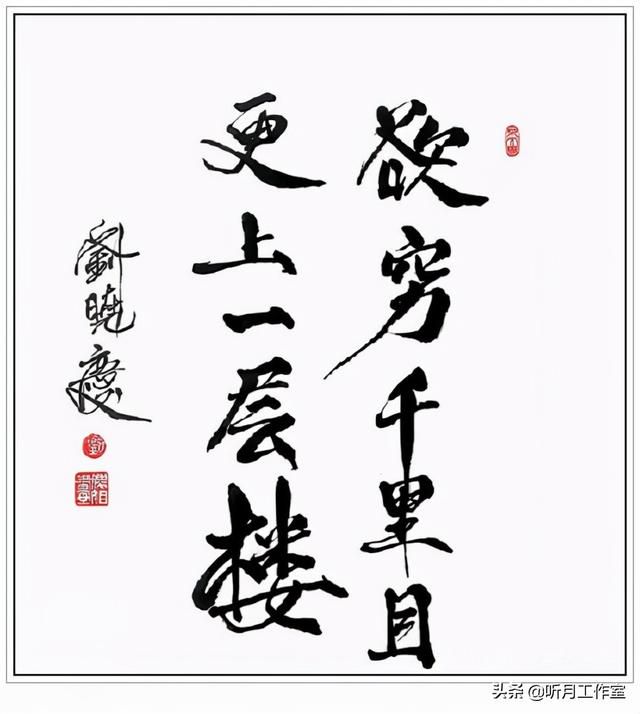 欲穷千里目
更上一层楼
劉曉慶
头条 @听月工作室